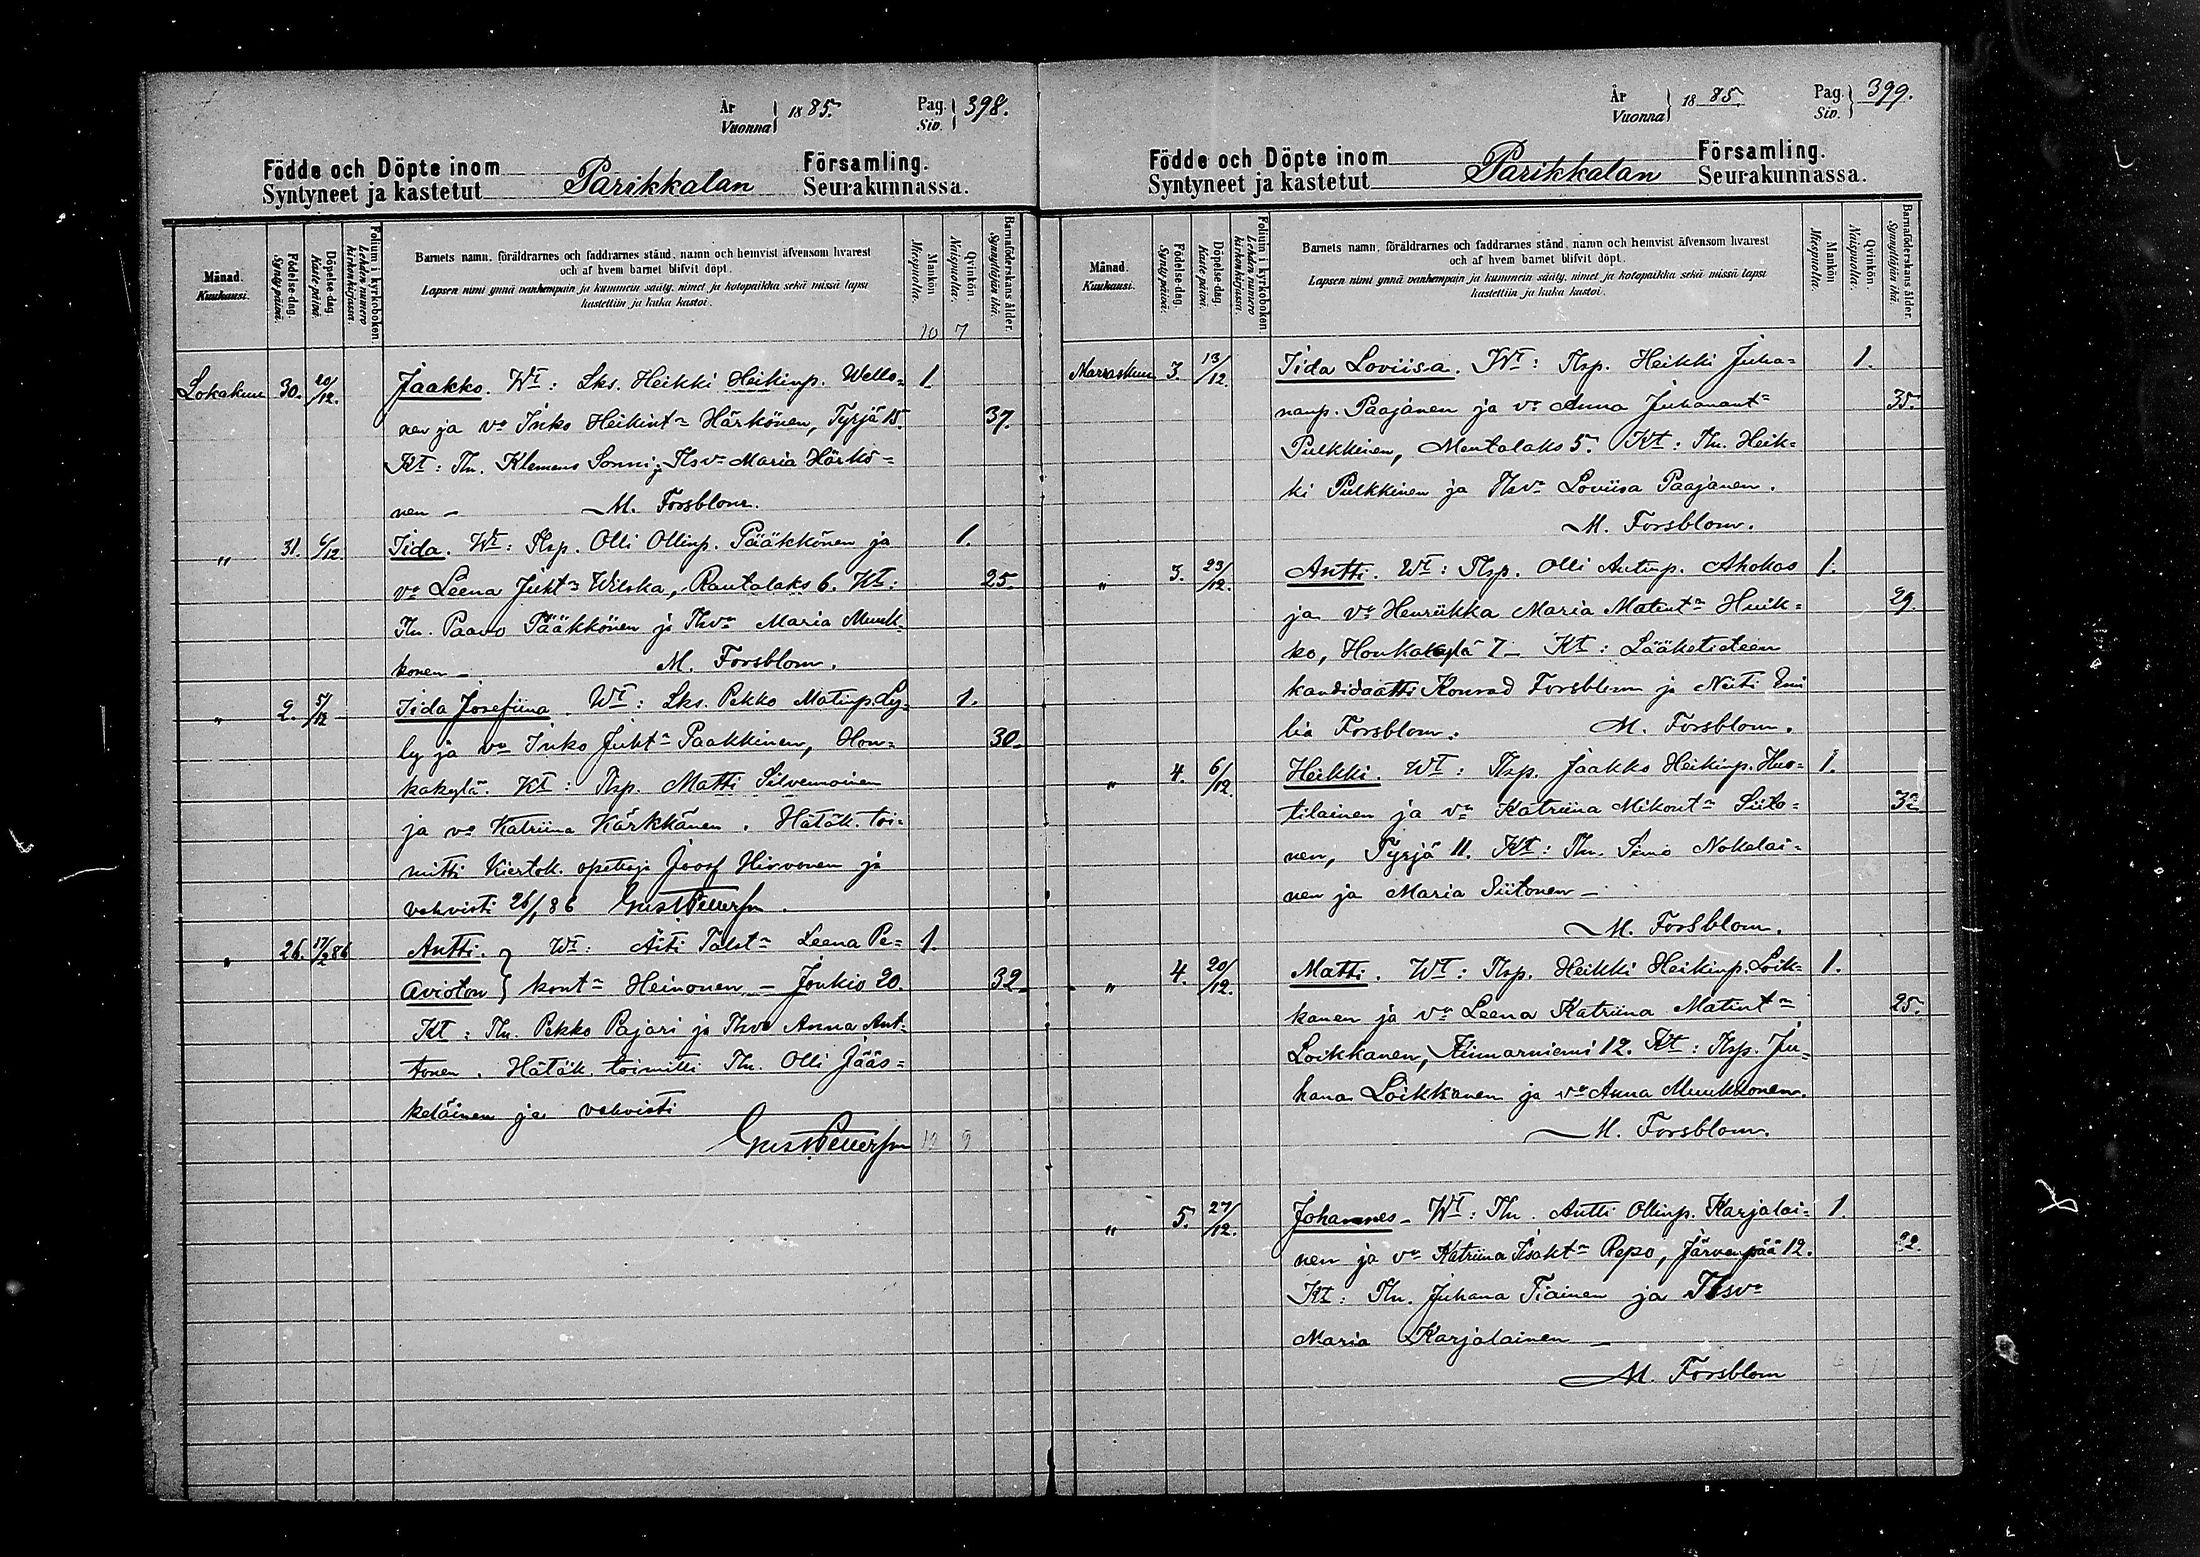 År
Vuonna 1885. Pag. Siv. 398.
Födde och Döpte inom Församling.
Syntyneet ja kastetut Parikkalan Seurakunnassa.
Månad. Kuukausi.
Födelse-dag. Synty-päivä.
Döpelse-dag. Kaste-päivä.
Folium i kyrkoboken. Lehden numero kirkonkirjassa.
Barnets namn, föräldrarnes och faddrarnes stånd, namn och hemvist äfvensom hvarest
och af hvem barnet blifvit döpt.
Lapsen nimi ynnä vanhempain ja kummein sääty, nimet ja kotopaikka sekä missä lapsi
kastettiin ja kuka kastoi.
Mankön Miespuolta.
Qvinkön. Naispuolta.
Barnaföderskans ålder. Synnyttäjän ikä.
10 7
Lokakuu 30. 20/12. Jaakko. Wt: Lks. Heikki Heikinp. Wello= 1.
nen ja vo Inko Heikint:n Härkönen, Tyrjä 15. 37.
Kt: Tln. Klemens Sonni; Tlsva Maria Härkö=
nen – M. Forsblom.
" 31. 6/12. Iida. Wt: Tlsp. Olli Ollinp. Pääkkönen ja 1.
vo Leena Juht:n Wilska, Rautalaks 6. Kt: 25.
Tln. Paavo Pääkkönen ja Tlsva Maria Muuk=
konen – M. Forsblom.
" 2. 5/12 Iida Josefiina. Wt: Lks. Pekko Matinp. Ly= 1.
ly ja vo Inko Juht:n Paakkinen, Hon= 30.
kakylä. Kt: Tlsp. Matti Silvennoinen
ja vo Katriina Kärkkänen. Hätäk. toi=
mitti Kiertok. opettaja Joosf Hirvonen ja
vahvisti 26/1 86
" 26. 17/2 86 Antti. Wt: Äiti Talt:n Leena Pe= 1.
Avioton kont:n Heinonen – Joukio 20. 32.
Kt: Tln. Pekko Pajari ja Tlsva Anna Ant=
tonen. Hätäk. toimitti Tln. Olli Jääs=
keläinen ja vahvisti
År
Vuonna 1885. Pag. Siv. 399.
Födde och Döpte inom Församling.
Syntyneet ja kastetut Parikkalan Seurakunnassa.
Månad. Kuukausi.
Födelse-dag. Synty-päivä.
Döpelse-dag. Kaste-päivä.
Folium i kyrkoboken. Lehden numero kirkonkirjassa.
Barnets namn, föräldrarnes och faddrarnes stånd, namn och hemvist äfvensom hvarest
och af hvem barnet blifvit döpt.
Lapsen nimi ynnä vanhempain ja kummein sääty, nimet ja kotopaikka sekä missä lapsi
kastettiin ja kuka kastoi.
Mankön Miespuolta.
Qvinkön. Naispuolta.
Barnaföderskans ålder. Synnyttäjän ikä.
Marraskuu 3. 13/12. Iida Loviisa. Wt: Tlsp. Heikki Juha= 1.
nanp. Paajanen ja vo Anna Juhanant:n 35.
Pulkkinen, Mentalaks 5. Kt: Tln. Heik=
ki Pulkkinen ja Tlsva Loviisa Paajanen.
M. Forsblom.
" 3. 23/12. Antti. Wt: Tlsp. Olli Antinp. Ahokas 1.
ja vo Henriikka Maria Matint:n Huik= 29.
ko, Honkakylä 7 – Kt: Lääketieteen
kandidaatti Konrad Forsblom ja Neiti Emi
lia Forsblom. M. Forsblom.
" 4. 6/12. Heikki. Wt: Tlsp. Jaakko Heikinp. Huo= 1.
tilainen ja vo Katriina Mikont:n Siito= 32
nen, Tyrjä 11. Kt: Tln. Simo Nokelai=
nen ja Maria Siitonen –
M. Forsblom.
" 4. 20/12. Matti. Wt: Tlsp. Heikki Heikinp. Loik= 1.
kanen ja vo Leena Katriina Matint:n 25.
Loikkanen, Kinnarniemi 12. Kt: Tlsp. Ju=
hana Loikkanen ja vo Anna Muukkonen.
M. Forsblom.
" 5. 27/12. Johannes – Wt: Tln. Antti Ollinp. Karjalai= 1.
nen ja vo Katriina Iisakt:n Repo, Järvenpää 12. 22.
Kt: Tln. Juhana Tiainen ja Tlsva
Maria Karjalainen –
M. Forsblom